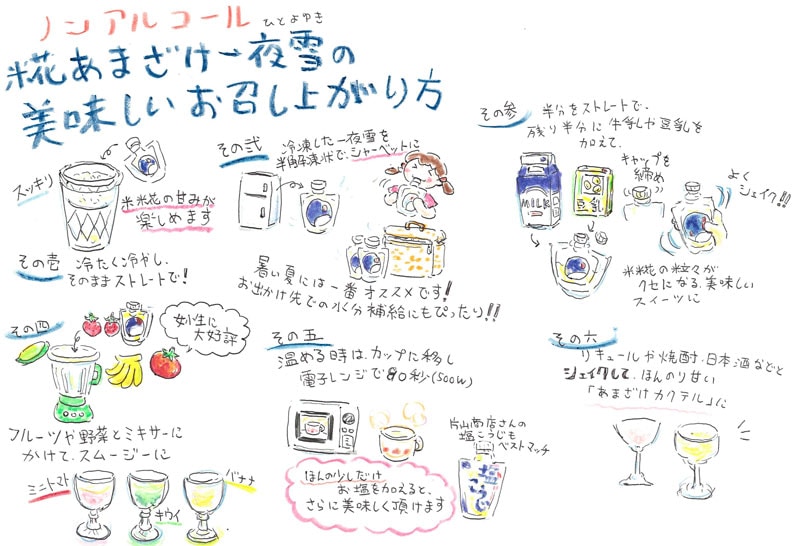 ノンアルコール
ひとよゆき
糀あまざけ一夜雪の
美味しいお召し上がり方
スッキリ
米糀の甘みが
楽しめます
その壱 冷たく冷やし、
そのままストレートで!
その弐 冷凍した一夜雪を
半解凍状で、シャーベットに
暑い夏には一番オススメです!
お出かけ先での水分補給にもぴったり!!
その参 半分をストレートで、
残り半分に牛乳や豆乳を
加えて、
キャップを
締め
よく
シェイク!!
MILK
豆乳
米糀の粒々が
クセになる、美味しい
スイーツに
その四
女性に
大好評
フルーツや野菜とミキサーに
かけて、スムージーに
ミニトマト
キウイ
バナナ
その五
温める時は、カップに移し
電子レンジで80秒(500W)
ほんの少しだけ
お塩を加えると、
さらに美味しく頂けます
片山商店さんの
塩こうじも
ベストマッチ
塩こうじ
その六
リキュールや焼酎、日本酒などと
シェイクして、ほんのり甘い
「あまざけカクテル」に